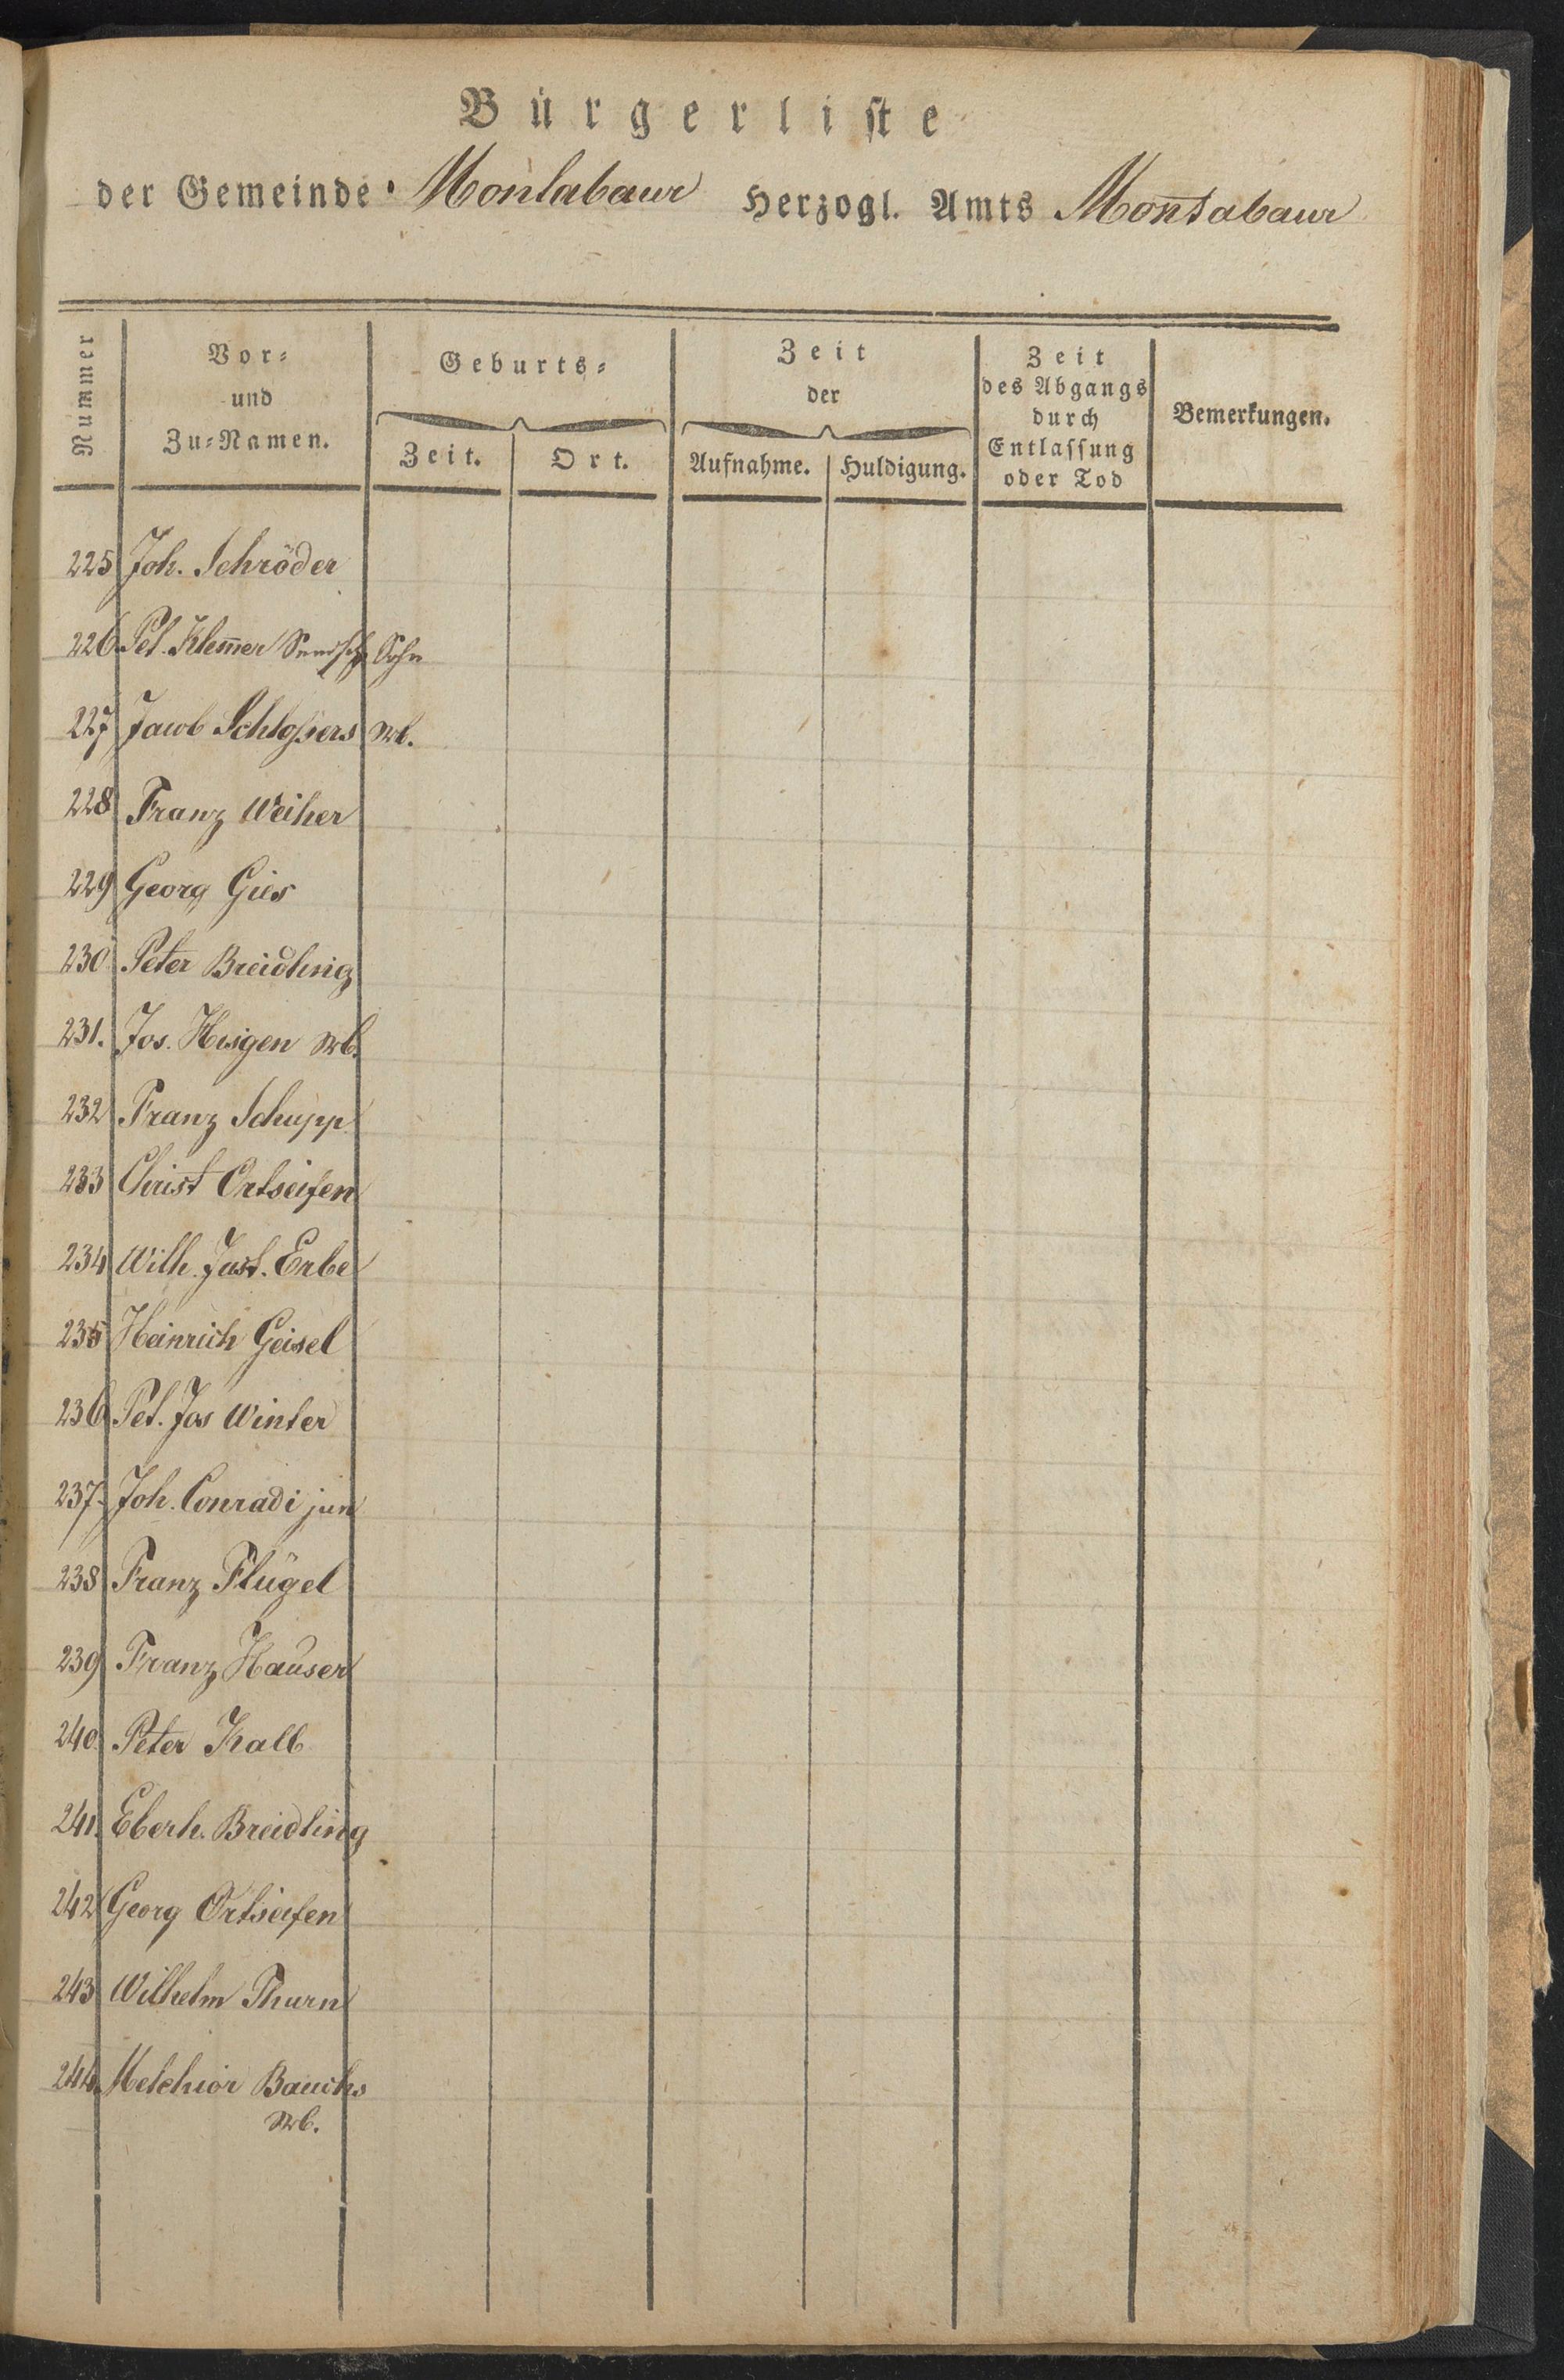 Bürgerliste
der Gemeinde Montabaur Herzogl. Amts Montabaur
Nummer
Vor-
und
Zu-Namen.
Geburts-
Zeit. Ort.
Zeit
der
Aufnahme. Huldigung.
Zeit
des Abgangs
durch
Entlassung
oder Tod
Bemerkungen.
225 Joh. Schröder
226 Pet. Klem̄er Sohn
227 Jacob Schlossers Wb.
228 Franz Weiher
229 Georg Gies
230 Peter Breidling
231. Jos. Heisgen Wb.
232 Franz Schupp
233 Christ Ortseifen
234 Wilh. Just. Erbe
235 Heinrich Geisel
236 Pet. Jos Winter
237. Joh. Conradi jun
238 Franz Flügel
239 Franz Hauser
240. Peter Kalb
241. Eberh. Breidling
242 Georg Ortseifen
243 Wilhelm Thurn
244. Melchior Bauchs
Wb.